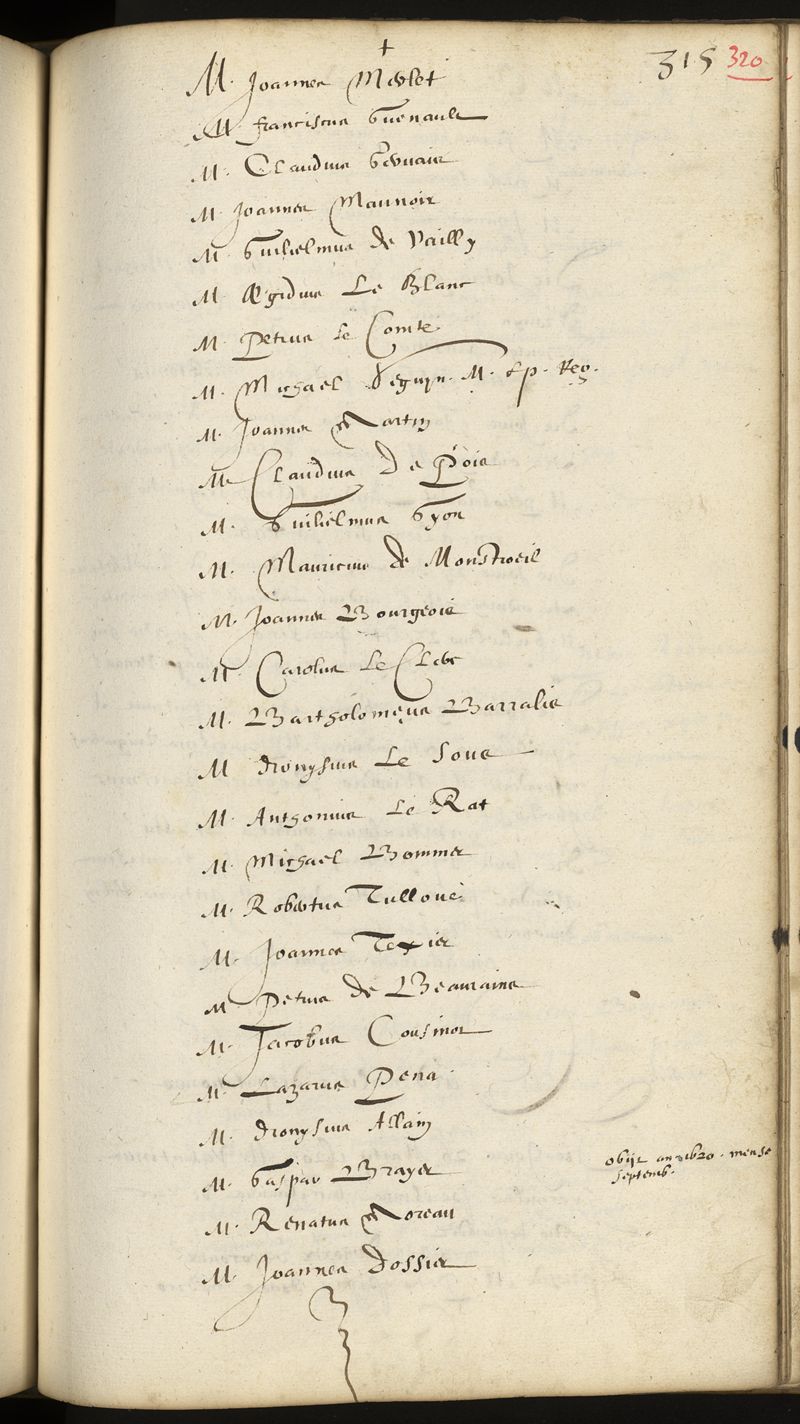 +
315 320
M. Joannes Merlet
M. Franciscus Guenault
M. Claudius Gervais
M. Joannes Maunoir
M. Guilielmus de Vailly
M. Ægidius Le Blanc
M. Petrus Le Comte
M. Michael Seguyn. M. & p. Reg.
M. Joannes Martin
M. Claudius De Pois
M. Guilielmus Gyon
M. Mauricius de Monstroeil
M. Joannes Bourgeois
M. Carolus Le Clerc
M. Bartholomeus Barralis
M Dionysius Le Soue
M. Anthonius Le Rat
M. Michael Bommer
M. Robertus Tulloue
M. Joannes Texier
M. Petrus de Beaurains
M. Jacobus Cousinot
M. Lazarus Pena
M. Dionysius Allain
M. Gaspar Brayer obijt an 1620. mense
septemb.
M. Renatus Moreau
M. Joannes Dossier